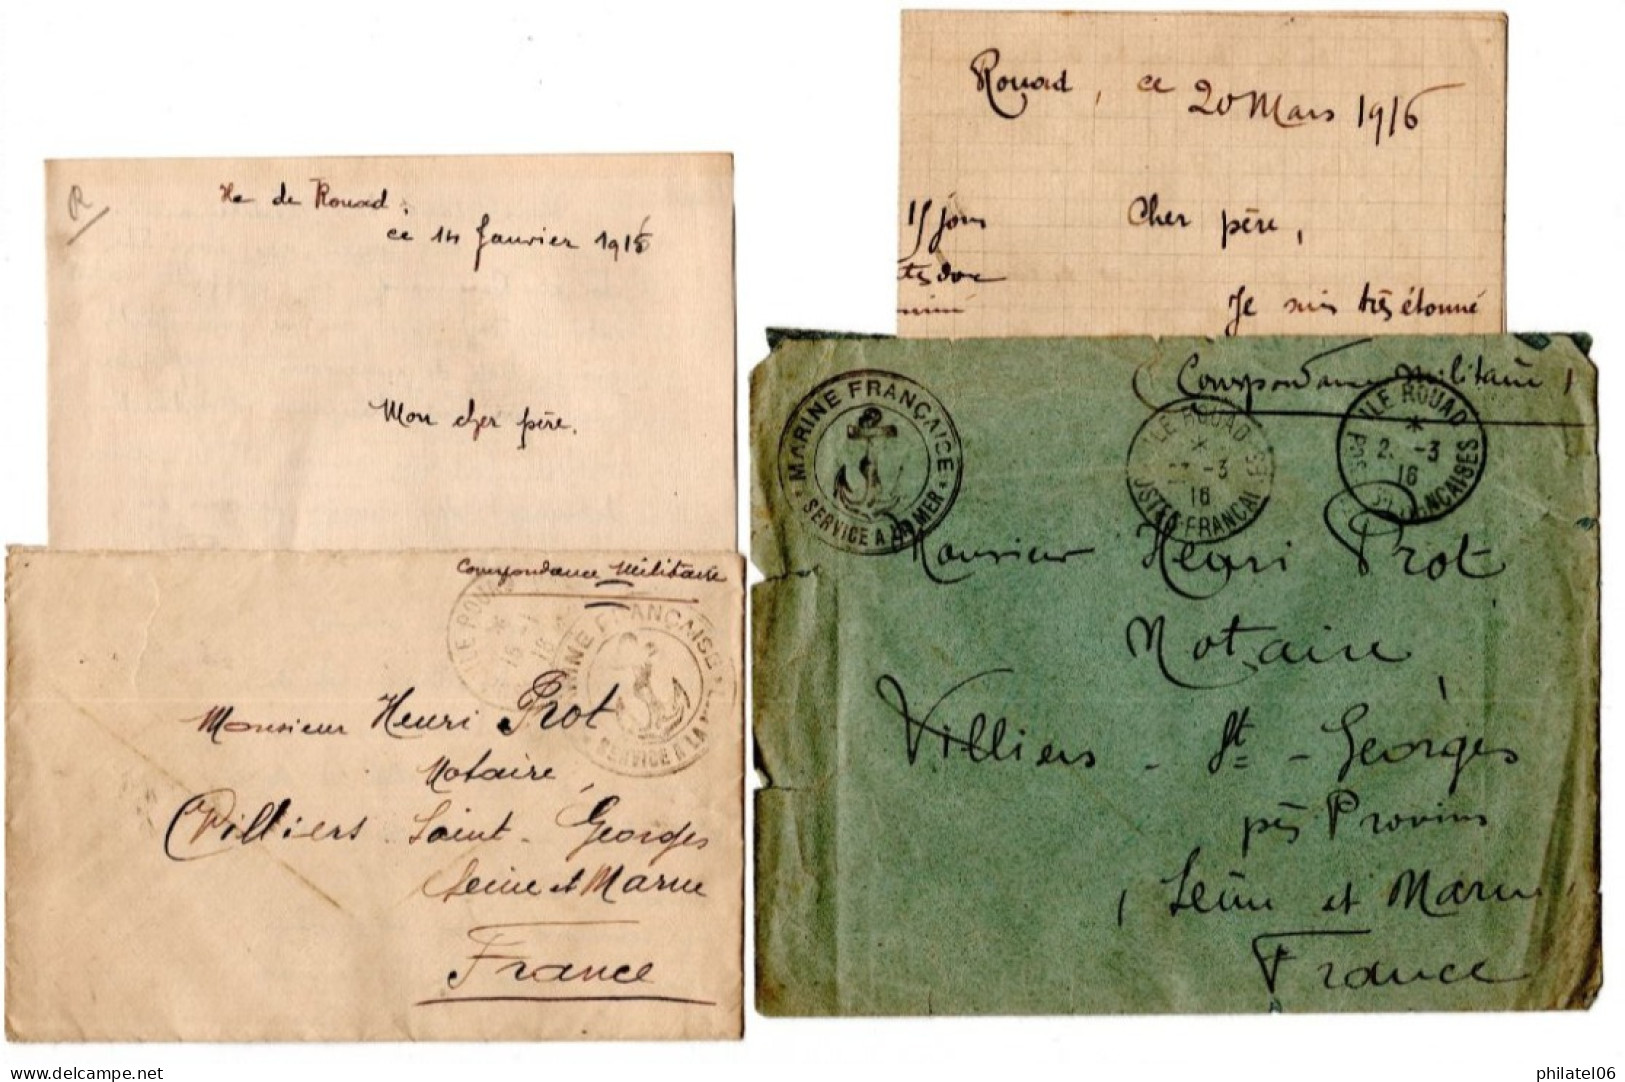 R
Ile de Rouad,
ce 14 Janvier 1916
Mon cher père.
Correspondance Militaire
ILE ROUAD
*
15 -1
16
MARINE FRANÇAISE
SERVICE A LA MER
Monsieur Henri Prot
Notaire
Villiers Saint-Georges
Seine et Marne
France
Rouad, ce 20 Mars 1916
15 jours
Cher père,
Je suis très étonné
Correspondance Militaire
MARINE FRANÇAISE
SERVICE A LA MER
ILE ROUAD
*
-3
16
POSTES FRANÇAISES
ILE ROUAD
*
2. -3
16
POSTES FRANÇAISES
Monsieur Henri Prot
Notaire
Villiers - St - Georges
près Provins
Seine et Marne
France
philatel06